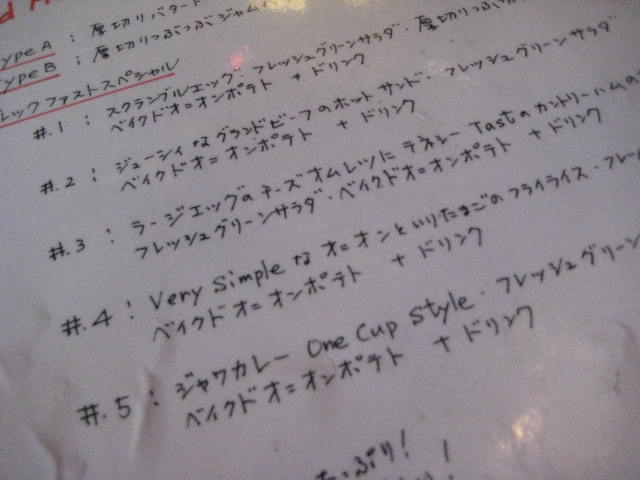 Type A : 厚切りバタート
Type B : 厚切りつぶつぶジャム
レックファストスペシャル
#.1 : スクランブルエッグ・フレッシュグリーンサラダ・厚切りつぶ
ベイクドオニオンポテト + ドリンク
#.2 : ジューシィなグランドビーフのホットサンド・フレッシュグリーンサラダ
ベイクドオニオンポテト + ドリンク
#.3 : ラージエッグのチーズオムレツにテネシーTastのカントリーハムの
フレッシュグリーンサラダ・ベイクドオニオンポテト + ドリンク
#.4 : Very Simple なオニオンといりたまごのフライライス・フレッ
ベイクドオニオンポテト + ドリンク
#.5 : ジャワカレー One Cup Style・フレッシュグリーン
ベイクドオニオンポテト + ドリンク
っぷり!